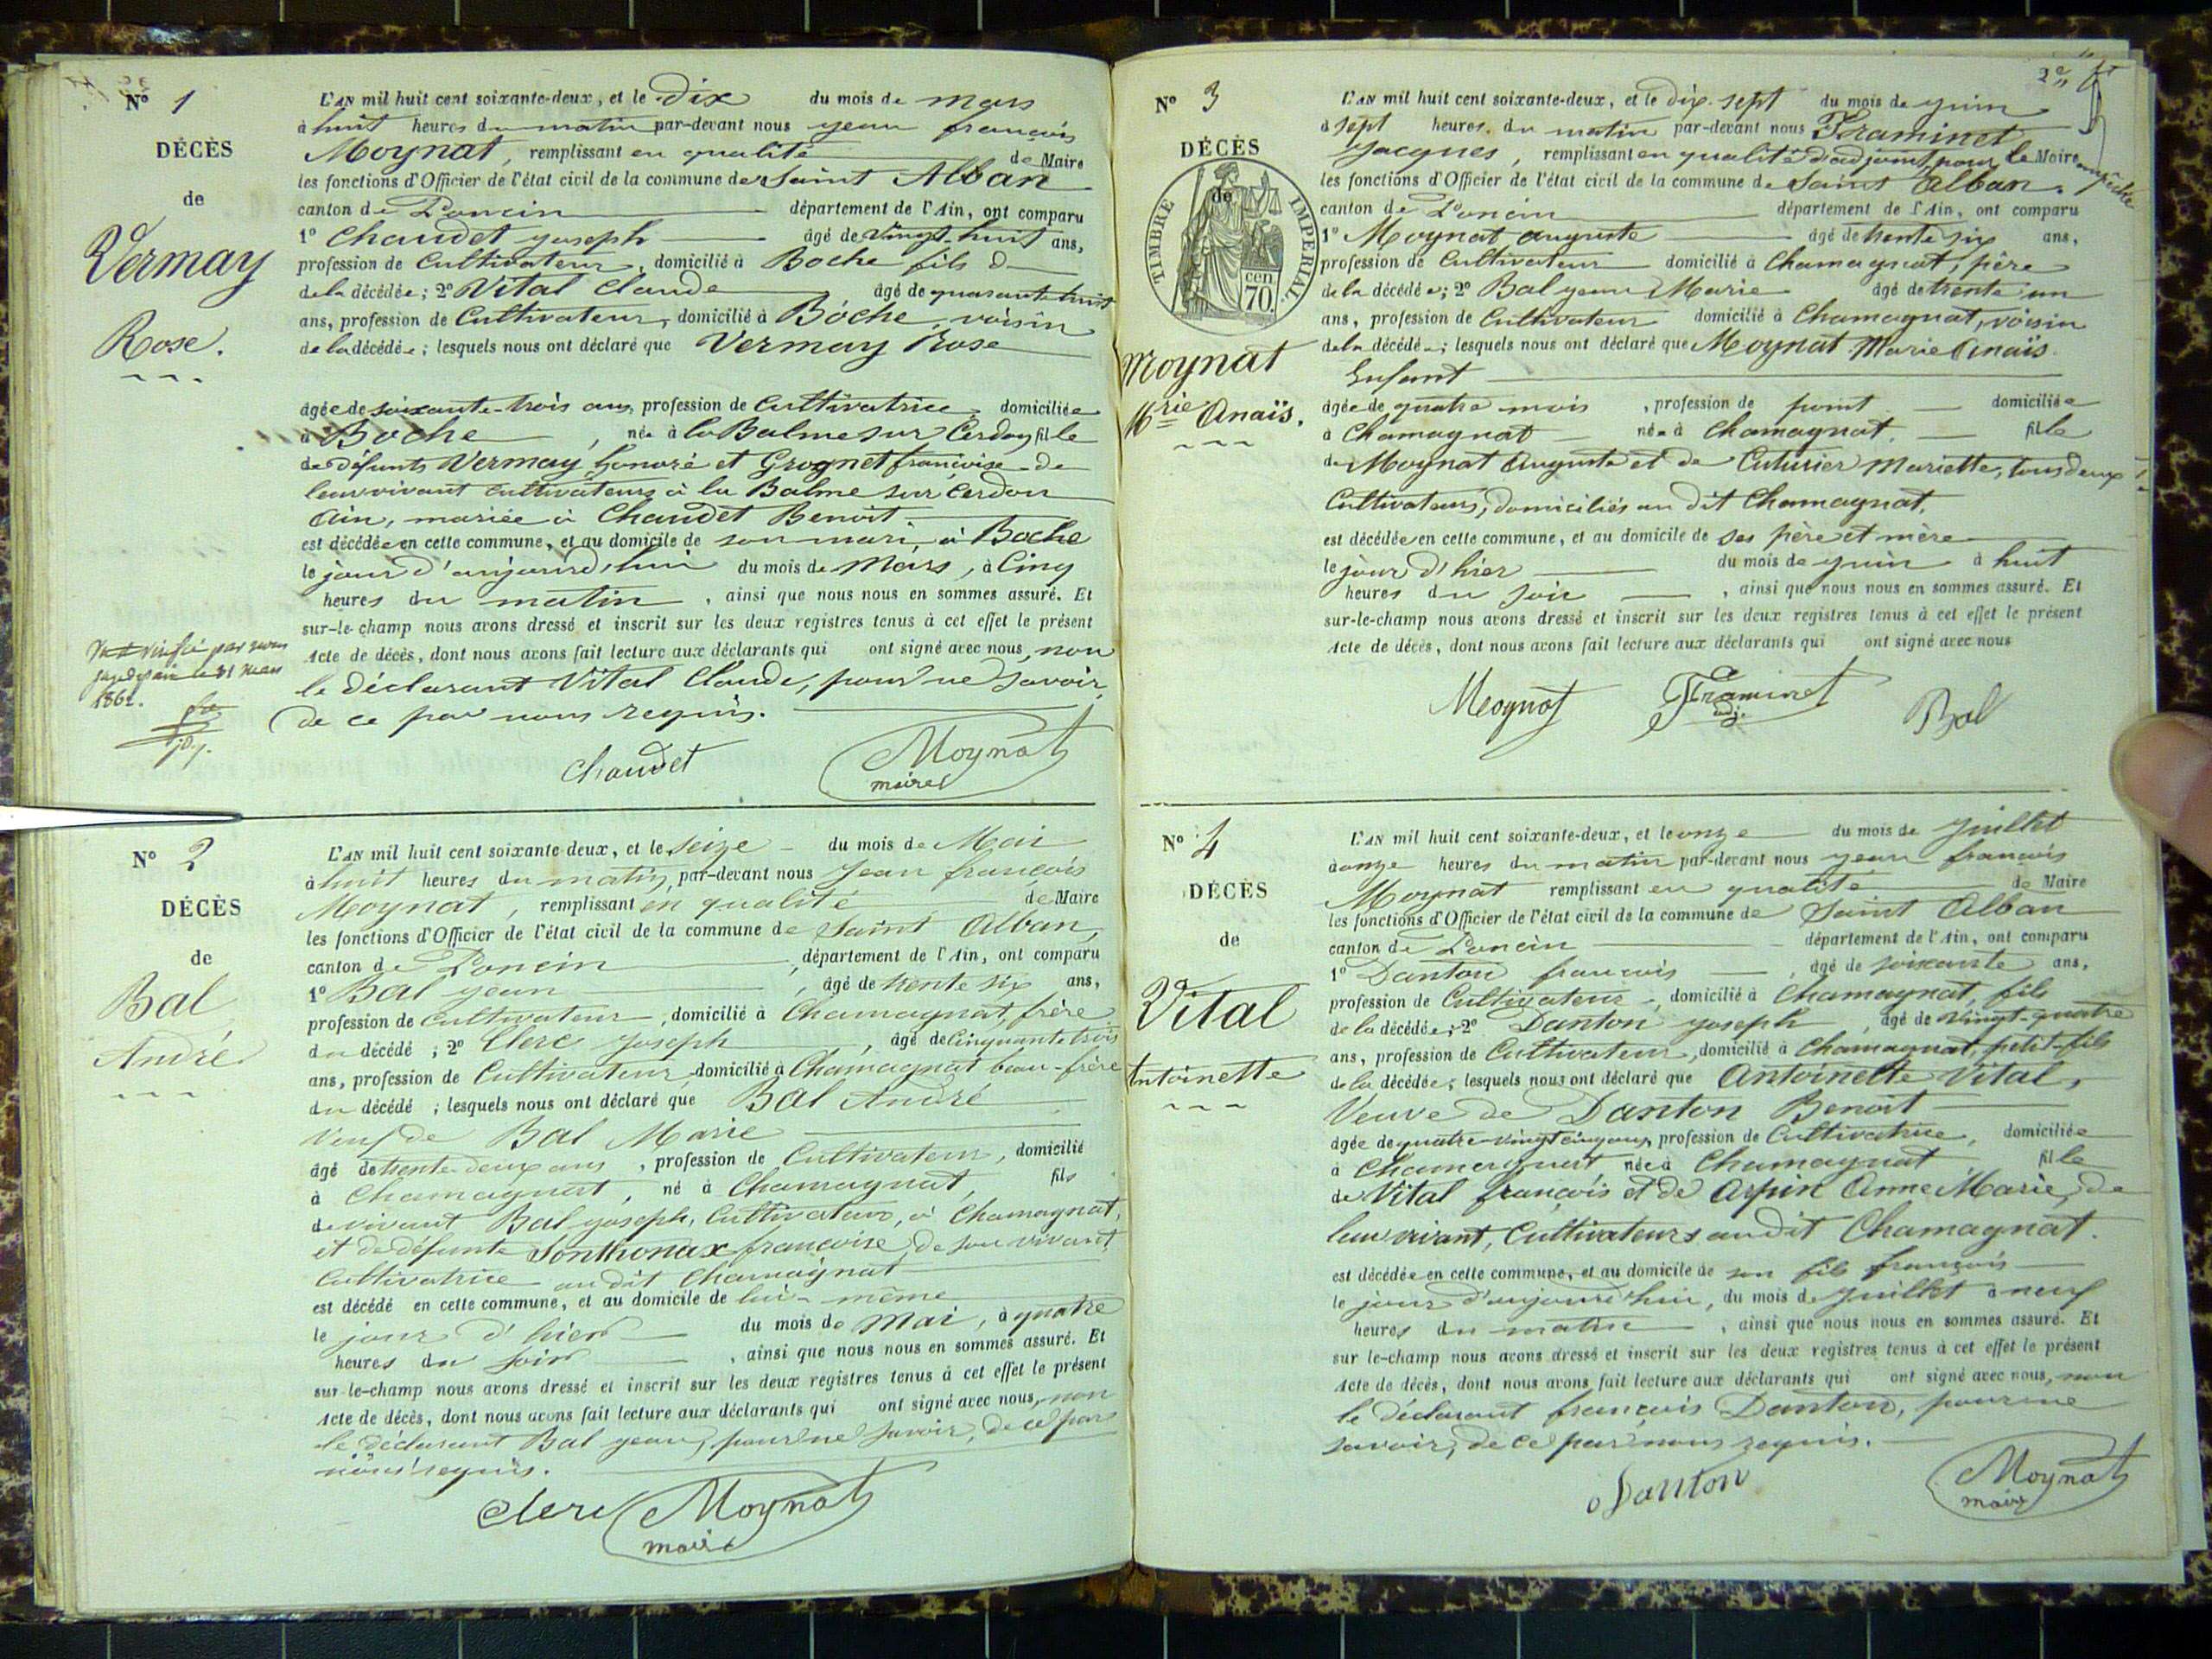 Nº 1
DÉCÈS
de
Vermay
Rose.
L'AN mil huit cent soixante-deux, et le Dix du mois de mars
à huit heures du matin par-devant nous jean françois
Moynat, remplissant en qualité de Maire
les fonctions d'Officier de l'état civil de la commune de Saint Alban
canton de Poncin département de l'Ain, ont comparu
1º Chaudet joseph âgé de vingt-huit ans,
profession de Cultivateur, domicilié à Boche fils d
de la décédée; 2º Vital Claude âgé de quarante huit
ans, profession de Cultivateur, domicilié à Boche, voisin
de la décédée; lesquels nous ont déclaré que Vermay Rose
âgée de soixante-trois ans, profession de Cultivatrice, domiciliée
à Boche, née à la Balme sur Cerdon fille
de défunts Vermay honoré et Grognet françoise de
leur vivant cultivateurs à la Balme sur Cerdon
Ain, mariée à Chaudet Benoit
est décédée en cette commune, et au domicile de son mari, à Boche
le jour d'aujourd'hui du mois de Mars, à Cinq
heures du matin, ainsi que nous nous en sommes assuré. Et
sur-le-champ nous avons dressé et inscrit sur les deux registres tenus à cet effet le présent
Acte de décès, dont nous avons fait lecture aux déclarants qui ont signé avec nous, non
le déclarant Vital Claude, pour ne savoir,
de ce par nous requis.
vérifié par nous
juge de paix le 31 mars
1862.
Chaudet Moynat
maire
Nº 2
DÉCÈS
de
Bal
André
L'AN mil huit cent soixante-deux, et le seize du mois de Mai
à huit heures du matin, par-devant nous Jean françois
Moynat, remplissant en qualité de Maire
les fonctions d'Officier de l'état civil de la commune de Saint Alban,
canton de Poncin, département de l'Ain, ont comparu
1º Bal jean, âgé de trente six ans,
profession de Cultivateur, domicilié à Chamagnat, frère
du décédé; 2º Clerc joseph, âgé de Cinquante trois
ans, profession de Cultivateur, domicilié à Chamagnat beau-frère
du décédé; lesquels nous ont déclaré que Bal André
veuf de Bal Marie
âgé de trente-deux ans, profession de Cultivateur, domicilié
à Chamagnat, né à Chamagnat, fils
de vivant Bal joseph, Cultivateur, à Chamagnat,
et de défunte Sonthonax françoise, de son vivant
Cultivatrice au dit Chamagnat
est décédé en cette commune, et au domicile de lui-même
le jour d'hier du mois de Mai, à quatre
heures du soir, ainsi que nous nous en sommes assuré. Et
sur-le-champ nous avons dressé et inscrit sur les deux registres tenus à cet effet le présent
Acte de décès, dont nous avons fait lecture aux déclarants qui ont signé avec nous, non
le déclarant Bal jean, pour ne savoir, de ce par
nous requis.
Clerc Moynat
maire
2e
Nº 3
DÉCÈS
de
TIMBRE IMPERIAL
70 cen
Moynat
Mrie Anaïs.
L'AN mil huit cent soixante-deux, et le dix-sept du mois de juin
à sept heures du matin par-devant nous Framinet
Jacques, remplissant en qualité d'adjoint pour le Maire empêché
les fonctions d'Officier de l'état civil de la commune de Saint Alban.
canton de Poncin département de l'Ain, ont comparu
1º Moynat auguste âgé de trente six ans,
profession de Cultivateur domicilié à Chamagnat, père
de la décédée; 2º Bal jean Marie âgé de trente un
ans, profession de Cultivateur domicilié à Chamagnat, voisin
de la décédée; lesquels nous ont déclaré que Moynat Marie Anaïs
Enfant
âgée de quatre mois, profession de point domiciliée
à Chamagnat née à Chamagnat. fille
de Moynat Auguste et de Cuhnier Mariette, tous deux
Cultivateurs, domiciliés au dit Chamagnat,
est décédée en cette commune, et au domicile de ses père et mère
le jour d'hier du mois de juin à huit
heures du soir, ainsi que nous nous en sommes assuré. Et
sur-le-champ nous avons dressé et inscrit sur les deux registres tenus à cet effet le présent
Acte de décès, dont nous avons fait lecture aux déclarants qui ont signé avec nous
Moynat Framinet Bal
adj.
Nº 4
DÉCÈS
de
Vital
Antoinette
L'AN mil huit cent soixante-deux, et le onze du mois de juillet
à onze heures du matin par-devant nous jean françois
Moynat remplissant en qualité de Maire
les fonctions d'Officier de l'état civil de la commune de Saint Alban
canton de Poncin département de l'Ain, ont comparu
1º Danton françois, âgé de soixante ans,
profession de Cultivateur, domicilié à Chamagnat, fils
de la décédée; 2º Danton joseph, âgé de vingt-quatre
ans, profession de Cultivateur, domicilié à Chamagnat, petit-fils
de la décédée; lesquels nous ont déclaré que Antoinette Vital,
Veuve de Danton Benoit
âgée de quatre-vingt cinq ans, profession de Cultivatrice, domiciliée
à Chamagnat, née à Chamagnat fille
de Vital françois et de Arpin Anne Marie, de
leur vivant, Cultivateurs au dit Chamagnat.
est décédée en cette commune, et au domicile de son fils françois
le jour d'aujourd'hui, du mois de juillet à neuf
heures du matin, ainsi que nous nous en sommes assuré. Et
sur le-champ nous avons dressé et inscrit sur les deux registres tenus à cet effet le présent
Acte de décès, dont nous avons fait lecture aux déclarants qui ont signé avec nous, non
le déclarant françois Danton, pour ne
savoir, de ce par nous requis.
Danton Moynat
maire